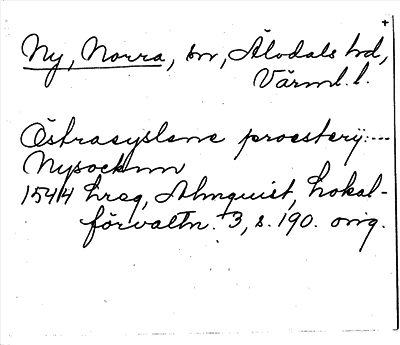 +
Ny, Norra, sn, Älvdals hd,
Värml. l.
Östrasyslene proesterij: ---
Nysocknn
1544 hreg, Almquist, Lokal-
förvaltn. 3, s. 190. orig.